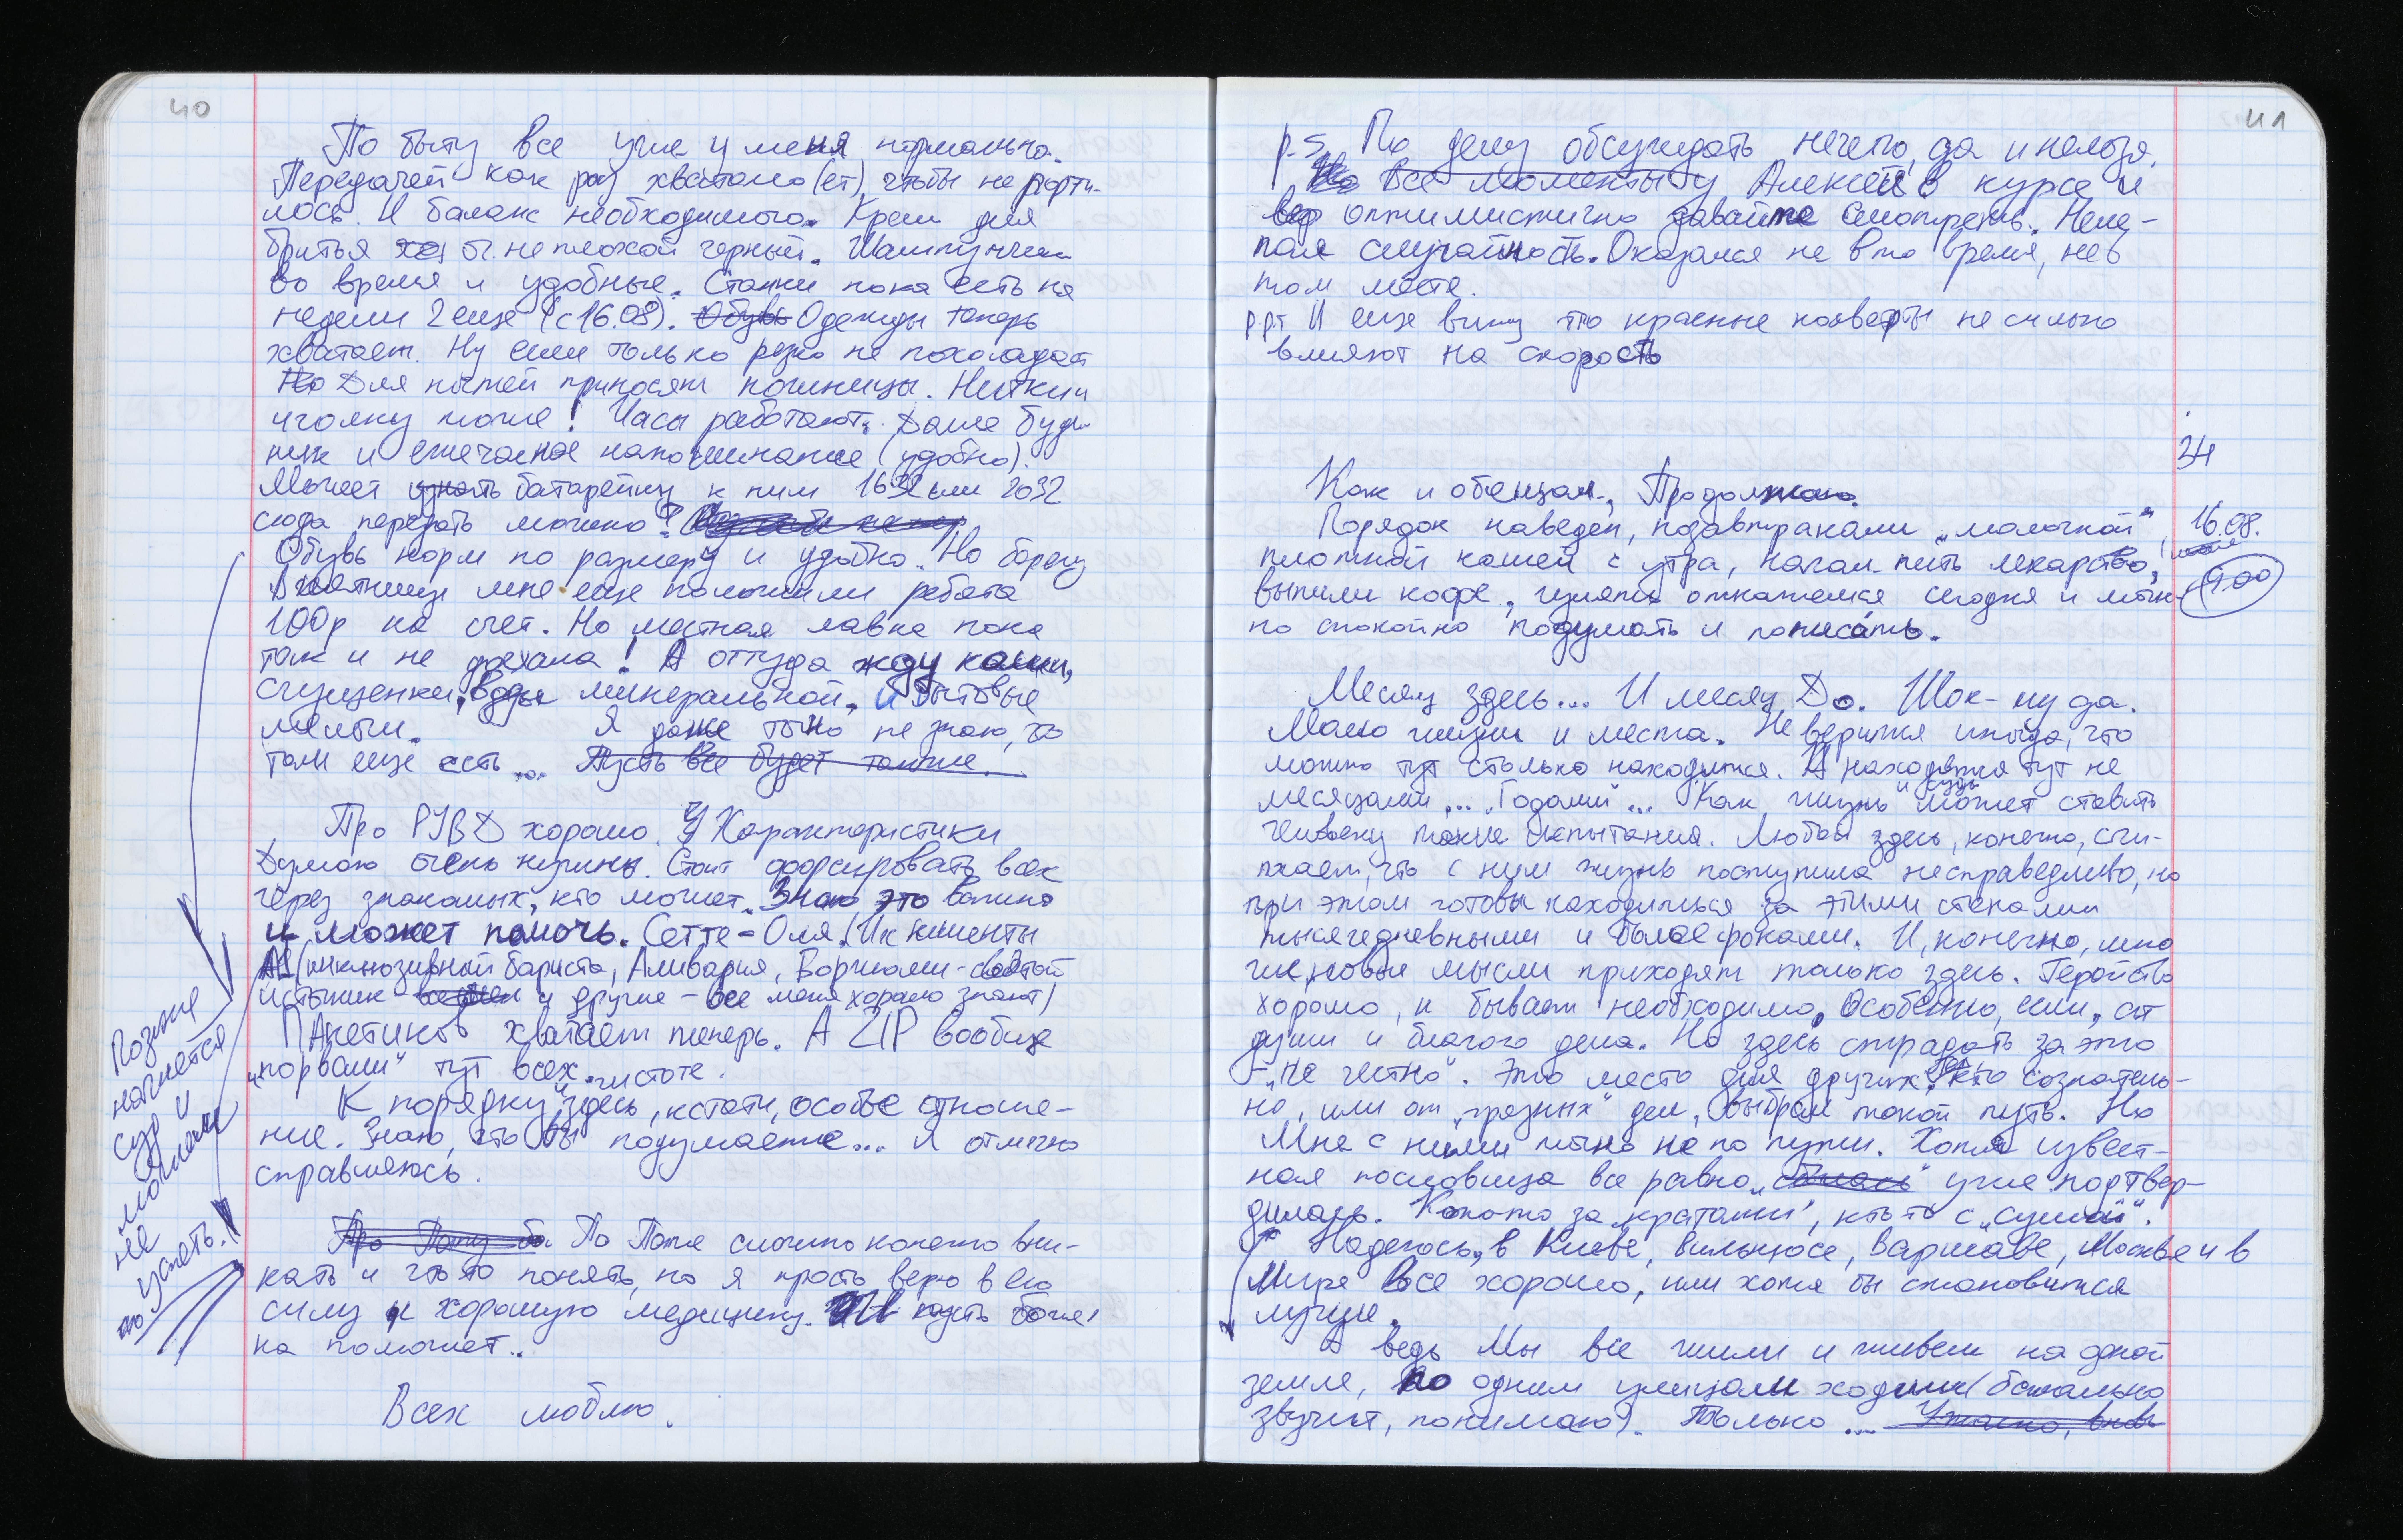 40
По быту все уже у меня нормально.
Передачей как раз хватало (ет), чтобы не порти-
лось. И баланс необходимого. Крем для
бритья неплохой черный. Шампунчик
во время и удобные. Станки пока есть на
недели 2 еще (с 16.08). Обувь Одежды теперь
хватает. Ну если только резко не похолодает
Но Для ногтей приносят ножницы. Нитки и
иголку тоже! Часы работают. Даже будиль-
ник и ежечасное напоминание (удобно).
Может узнать батарейку к ним 1632 или 2032
сюда передать можно?
Обувь норм по размеру и удобно. На борезу
В пятницу мне еще положили ребята
100р на счет. Но местная лавка пока
так и не доехала! А оттуда жду каши,
сгущенки, воды минеральной, и бытовые
мелочи. Я даже точно не знаю, что
там еще есть... Пусть все будет также.
Про РУВД хорошо. Характеристики
Думаю очень нужны. Стоит форсировать всех
через знакомых, кто может. Знаю это важно
и может помочь. Сетте-Оля. (Их клиенты
А1 (инклюзивной бариста, Аливария, Боржоми-святой
источник и другие - все меня хорошо знают)
Пакетиков хватает теперь. А ZIP вообще
„порвали" тут всех.
К порядку и чистоте здесь, кстати, особое отноше-
ние. Знаю, что вы подумаете... Я отлично
справляюсь.
Про Папу бо По Папе сложно конечно вни-
кать и что-то понять, но я просто верю в его
силу и хорошую медицину. И пусть больни-
на поможет..
Всех люблю.
Позже
начнется
суд и
можем
не
успеть.
41
p.s. По делу обсуждать нечего, да и нельзя.
Но Все моменты у Алексея в курсе и
оптимистично давайте смотреть. Неле-
пая случайность. Оказался не в то время, не в
том месте.
p.p.s И еще вижу что красные конверты не сильно
влияют на скорость
34
Как и обещал, Продолжаю.
Порядок наведен, позавтракали „молочной",
16.08.
плотной кашей с утра, начал пить лекарство,
9.00
выпили кофе, гулять откажемся сегодня и мож-
но спокойно подумать и пописать.
Месяц здесь... И месяц До. Шок - ну да.
Мало жизни и места. Не верится иногда, что
можно тут столько находиться. А находятся тут не
месяцами... „Годами"... Как жизнь и суд может ставить
человеку такие испытания. Любой здесь, конечно, счи-
тает, что с ним жизнь поступила несправедливо, но
при этом готовы находиться за этими стенами
тысячедневными и более сроками. И, конечно, мно-
гие, новые мысли приходят только здесь. Геройство
хорошо, и бывает необходимо, Особенно, если, от
души и благого дела. Но здесь страдать за это
- „не честно". Это место для других, тех, кто сознатель-
но, или от „грязных" дел, выбрал такой путь. Но
Мне с ними точно не по пути. Хотя извест-
ная пословица все равно „сбылась" уже подтвер-
дилась. Кто-то за „кратами", кто-то с „сумой".
Надеюсь, в Киеве, Вильнюсе, Варшаве, Москве и в
Мире Все хорошо, или хотя бы становится
лучше.
А ведь Мы все жили и живем на одной
земле, по одним улицам ходим (банально
звучит, понимаю). Только...